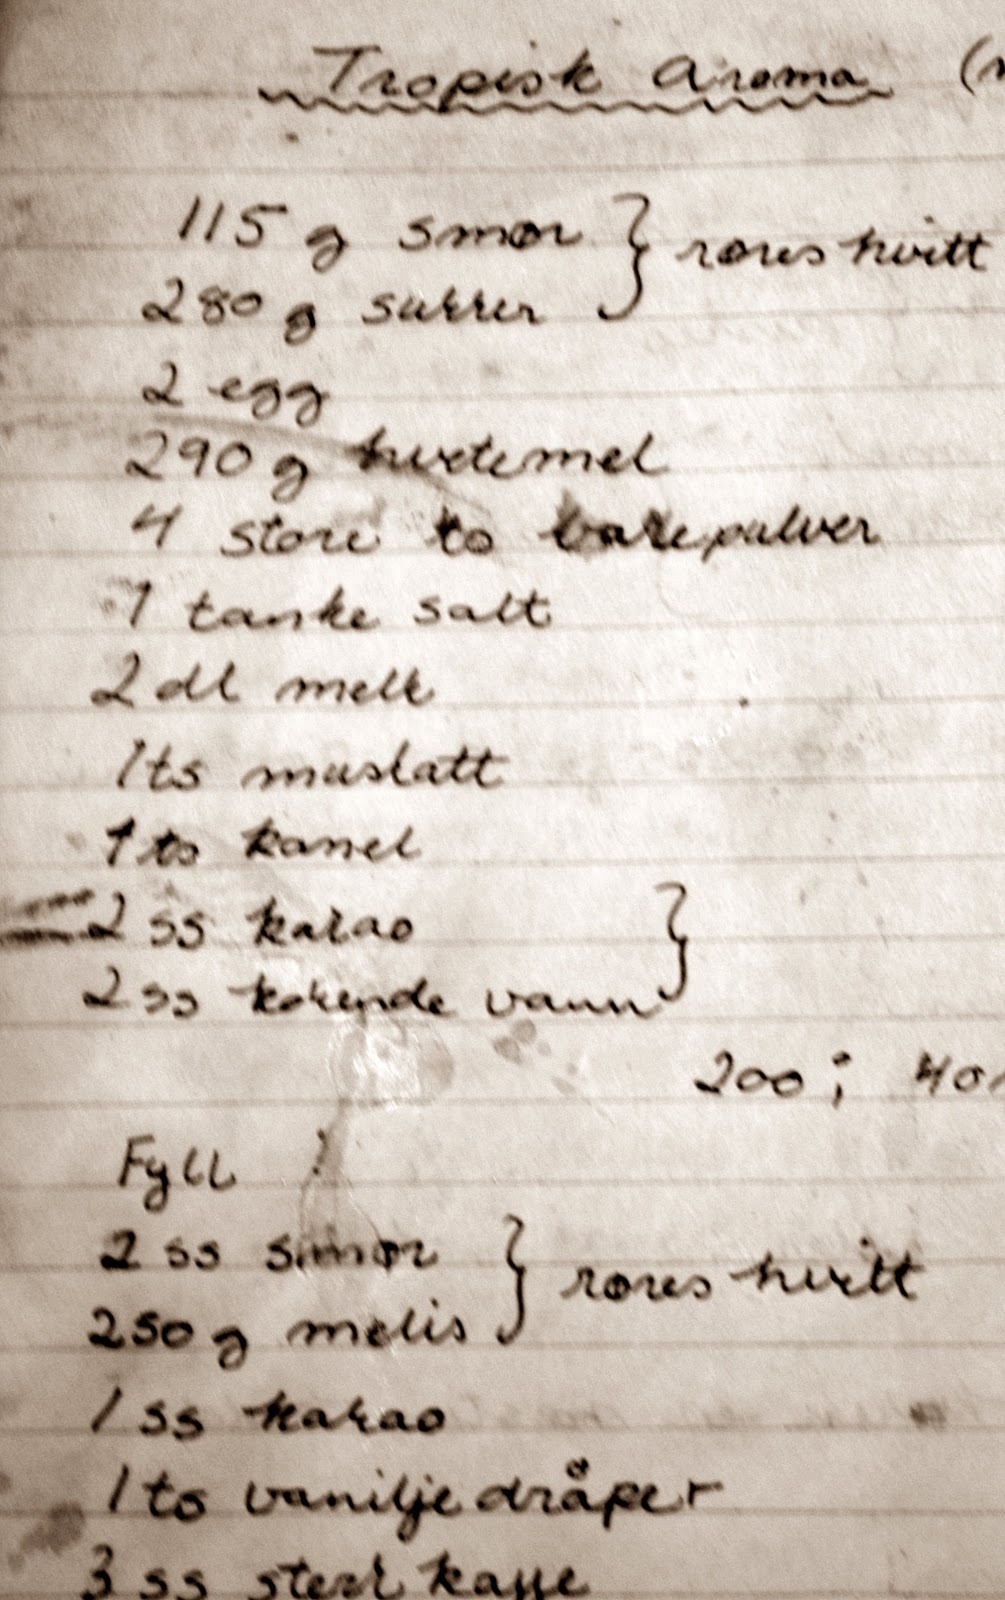 Tropisk Aroma (
115 g smør } røres hvitt
280 g sukker
2 egg
290 g hvetemel
4 store ts bakepulver
1 tanke salt
2 dl melk
1 ts muskatt
1 ts kanel
2 ss kakao }
2 ss kokende vann
200; 40
Fyll
2 ss smør } røres hvitt
250 g melis
1 ss kakao
1 ts vaniljedråper
3 ss sterk kaffe